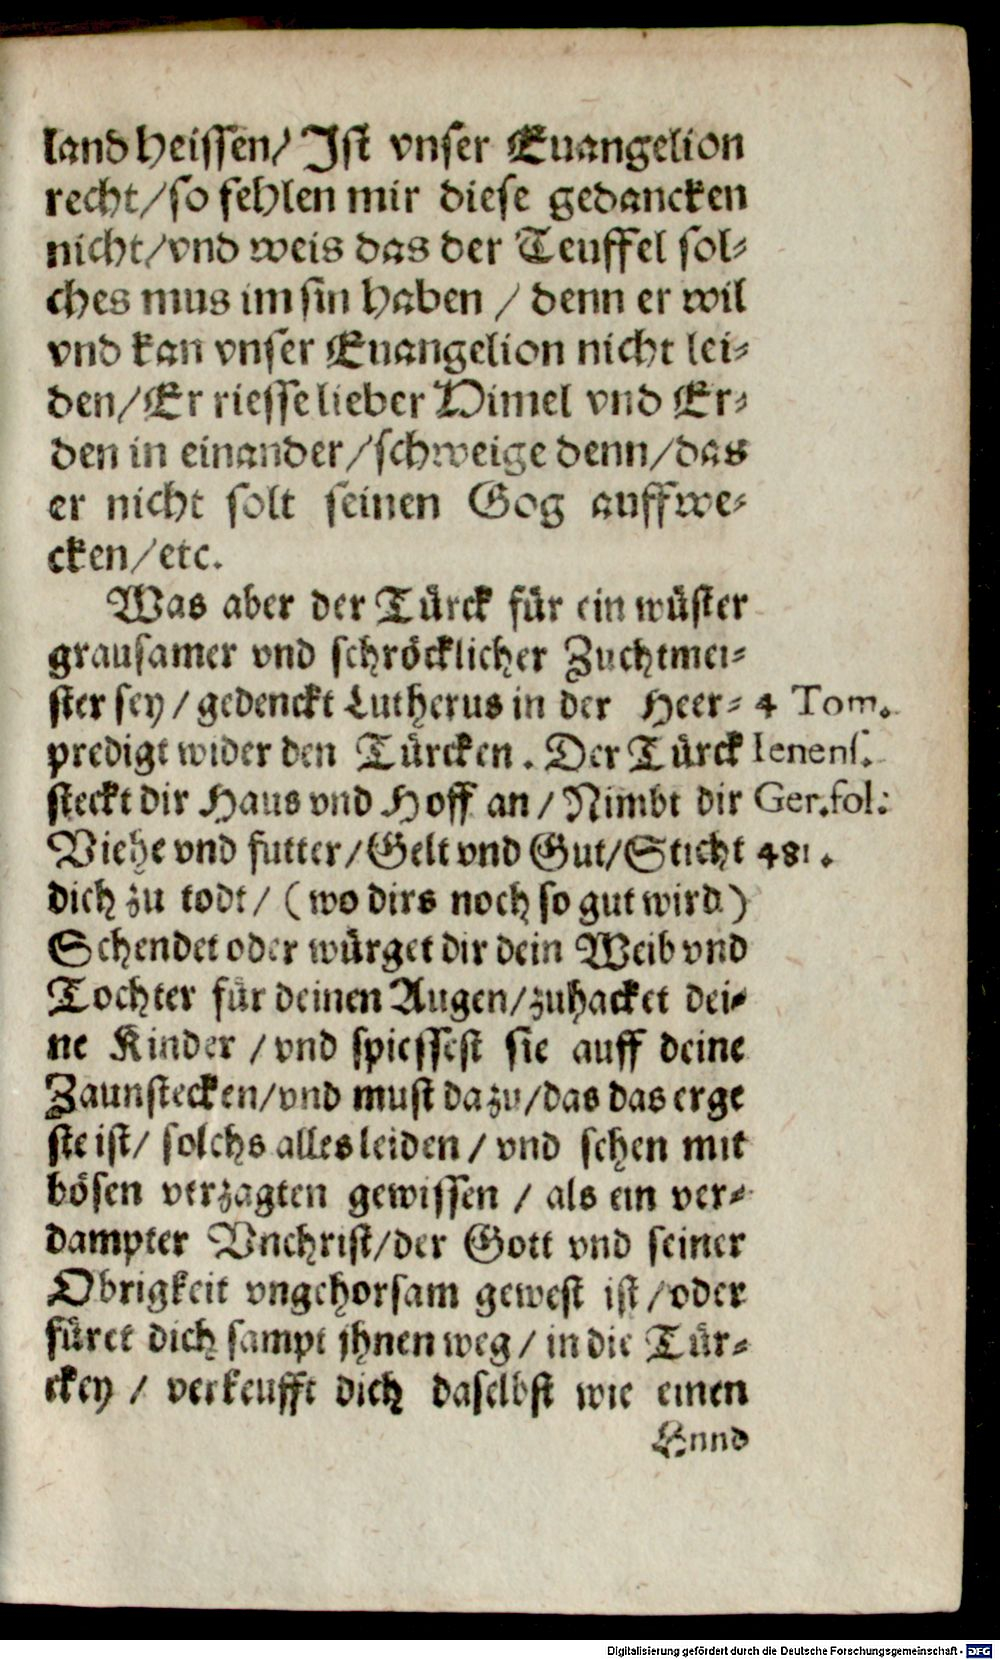 land heissen/ Ist vnser Euangelion
recht/so fehlen mir diese gedancken
nicht/vnd weis das der Teuffel sol⸗
ches mus im sin haben / denn er wil
vnd kan vnser Euangelion nicht lei⸗
den/Er riesse lieber Himel vnd Er⸗
den in einander/schweige denn/das
er nicht solt seinen Gog auffwe⸗
cken/etc.
Was aber der Türck für ein wüster
grausamer vnd schröcklicher Zuchtmei⸗
ster sey / gedenckt Lutherus in der Heer⸗
predigt wider den Türcken. Der Türck
steckt dir Haus vnd Hoff an / Nimbt dir
Viehe vnd futter/Gelt vnd Gut/Sticht
dich zu todt/ (wo dirs noch so gut wird)
Schendet oder würget dir dein Weib vnd
Tochter für deinen Augen/zuhacket dei⸗
ne Kinder / vnd spiessest sie auff deine
Zaunstecken/vnd must dazu/das das erge
ste ist/ solchs alles leiden / vnd sehen mit
bösen verzagten gewissen / als ein ver⸗
dampter Vnchrist/der Gott vnd seiner
Obrigkeit vngehorsam gewest ist / oder
füret dich sampt jhnen weg / in die Tür⸗
ckey / verkeufft dich daselbst wie einen
Hund
4 Tom.
Ienens.
Ger.fol:
481.
Digitalisierung gefördert durch die Deutsche Forschungsgemeinschaft - DFG